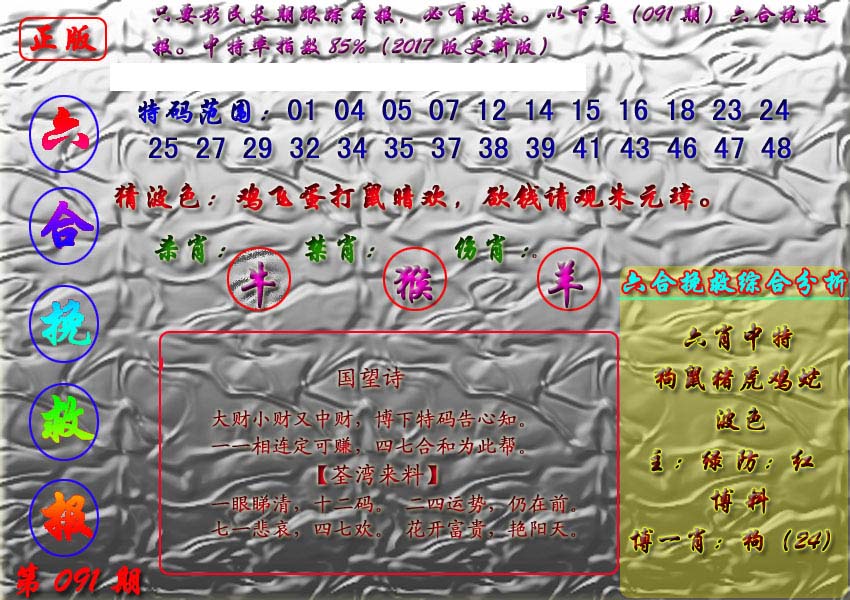 正版
只要彩民长期跟踪本报，必有收获。以下是（091期）六合挽救
报。中特率指数85%（2017版更新版）
特码范围：01 04 05 07 12 14 15 16 18 23 24
25 27 29 32 34 35 37 38 39 41 43 46 47 48
猜波色：鸡飞蛋打鼠暗欢，欲钱请观朱元璋。
杀肖：牛 禁肖：猴 伤肖：羊。
六合挽救报
第091期
国望诗
大财小财又中财，博下特码告心知。
一一相连定可赚，四七合和为此帮。
【荃湾来料】
一眼睇清，十二码。 二四运势，仍在前。
七一悲哀，四七欢。 花开富贵，艳阳天。
六合挽救综合分析
六肖中特
狗鼠猪虎鸡蛇
波色
主：绿防：红
博料
博一肖：狗（24）